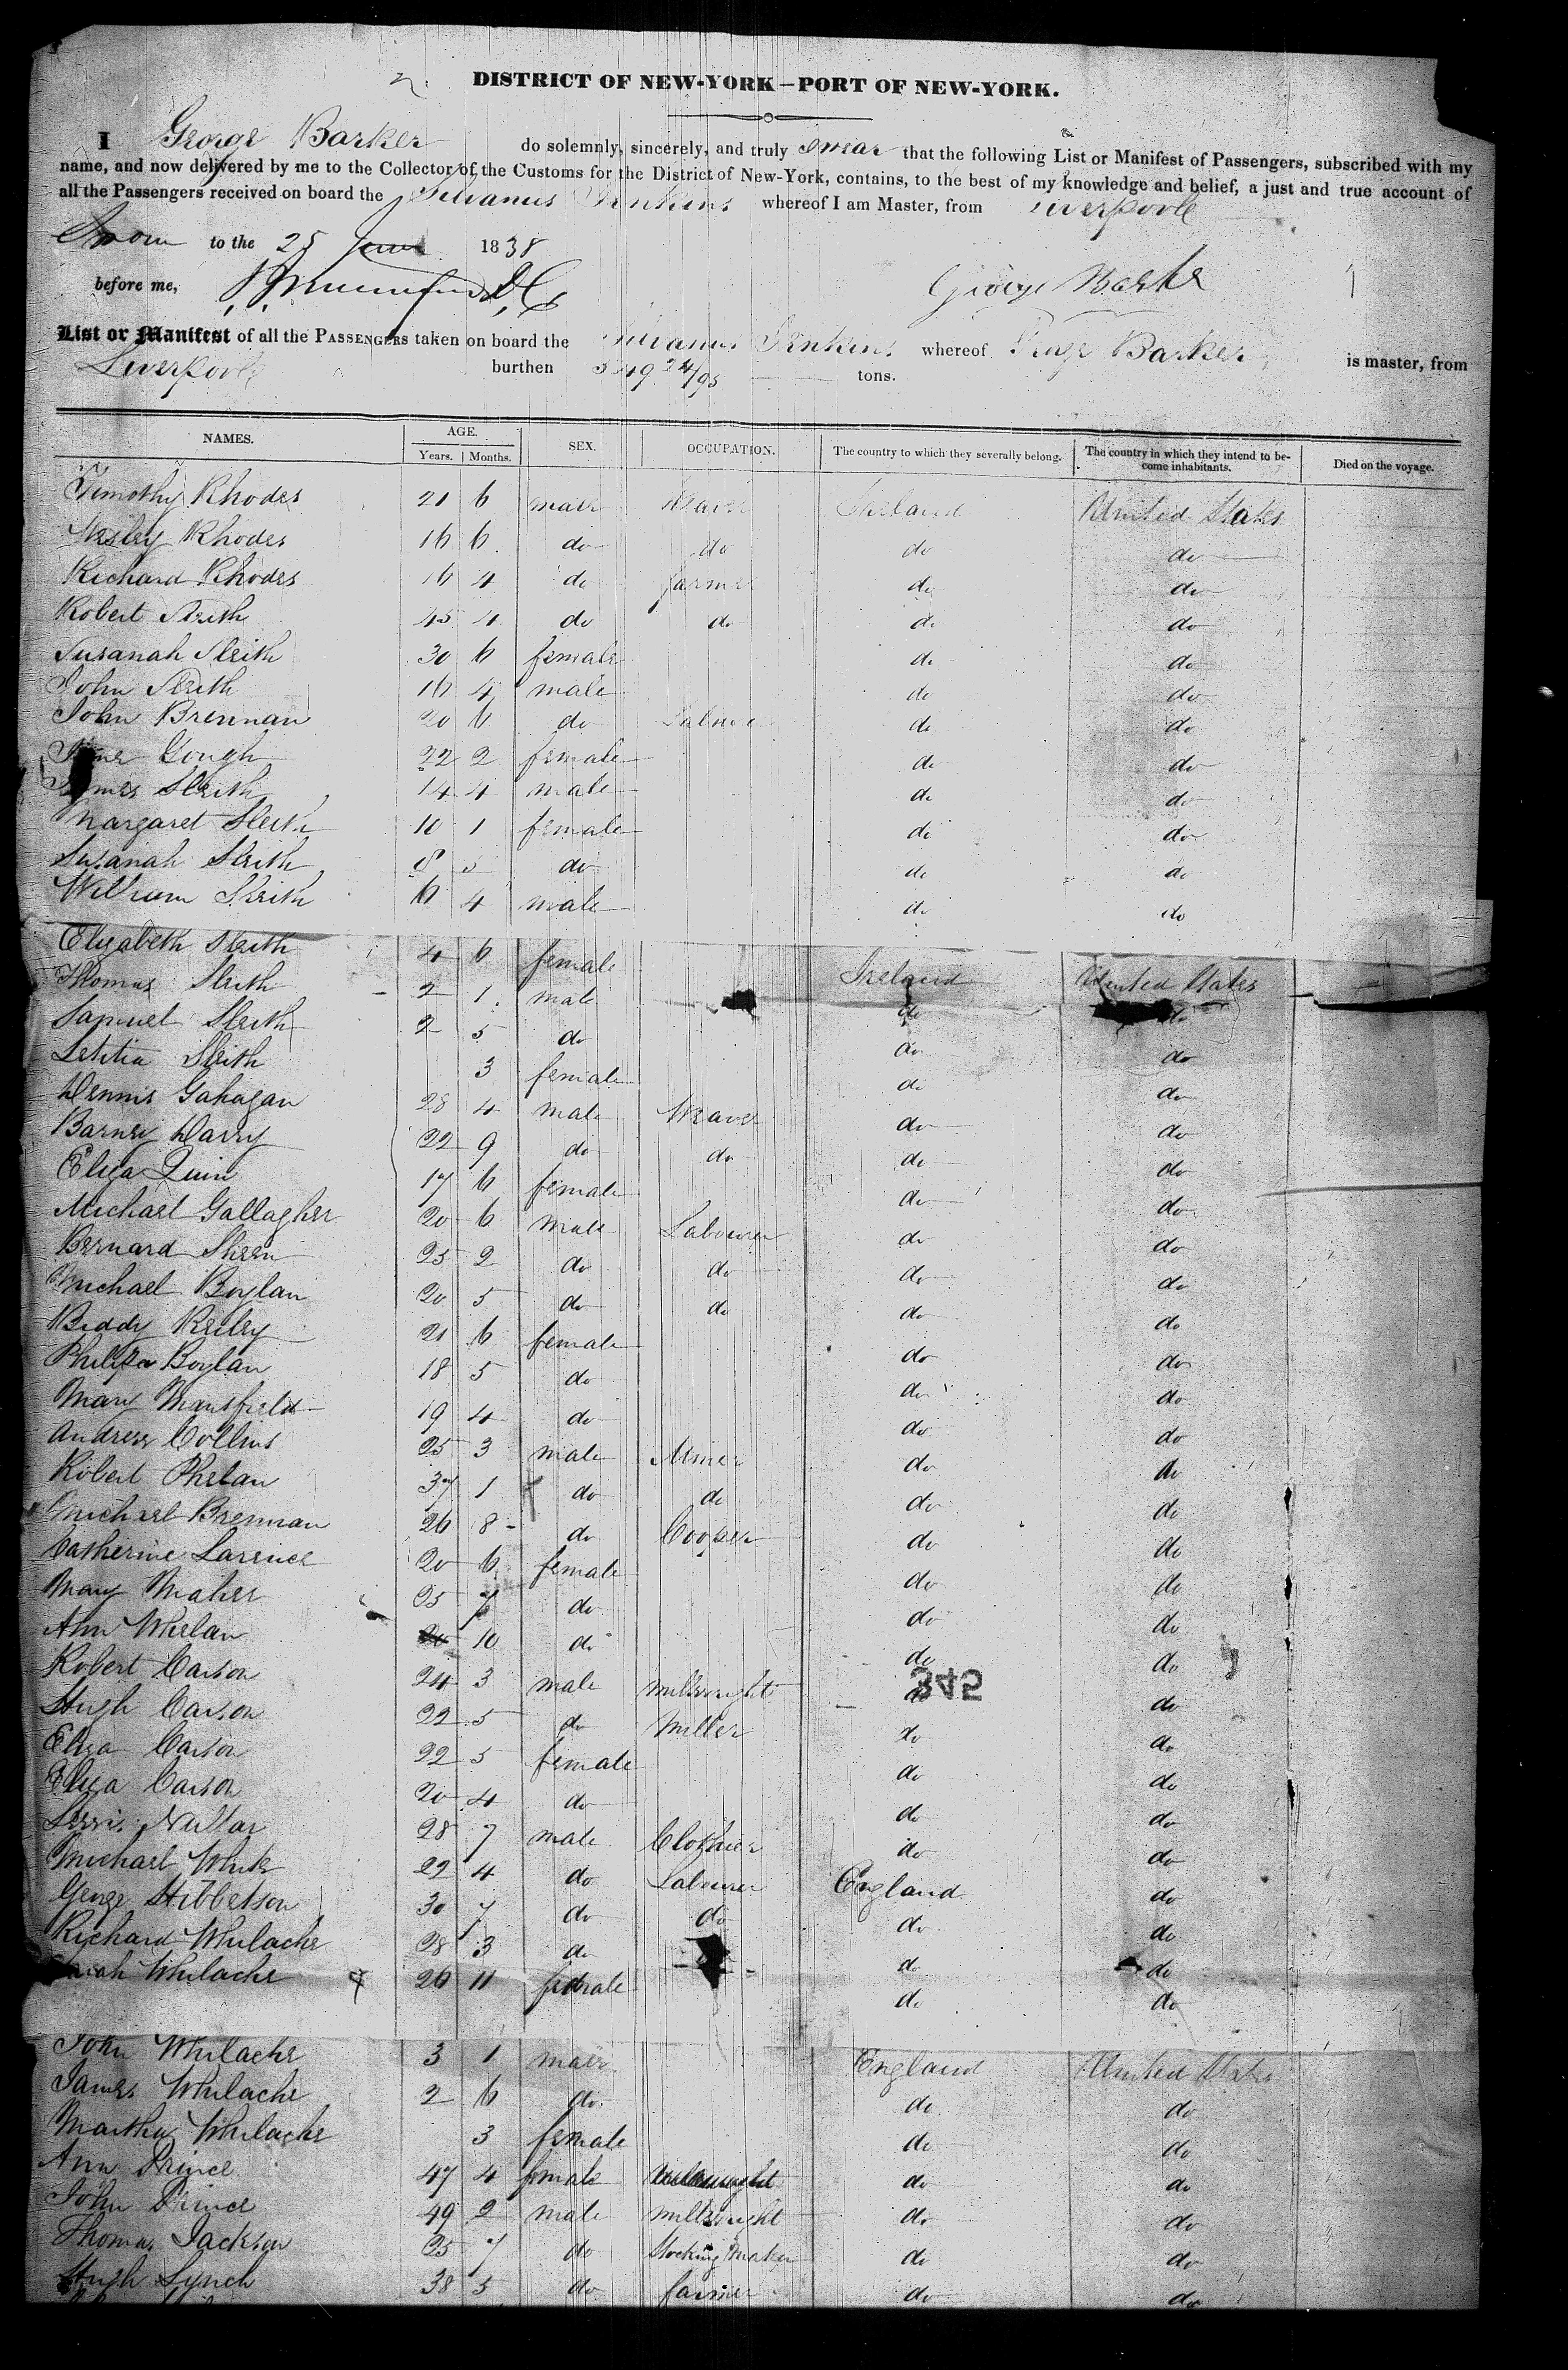 DISTRICT OF NEW-YORK—PORT OF NEW-YORK.
I George Barker do solemnly, sincerely, and truly swear that the following List or Manifest of Passengers, subscribed with my
name, and now delivered by me to the Collector of the Customs for the District of New-York, contains, to the best of my knowledge and belief, a just and true account of
all the Passengers received on board the Silvanus Jenkins whereof I am Master, from Liverpoole
Sworn to the 25 June 1838
before me, George Barker
List or Manifest of all the PASSENGERS taken on board the Silvanus Jenkins whereof George Barker is master, from
Liverpoole burthen 549 24/95 tons.
NAMES. AGE. SEX. OCCUPATION. The country to which they severally belong. The country in which they intend to become inhabitants. Died on the voyage.
Years. Months.
Timothy Rhodes 21 6 male Weaver Ireland United States
Wesley Rhodes 16 6 do do do do
Richard Rhodes 16 4 do farmer do do
Robert Sleith 45 4 do do do do
Susanah Sleith 30 6 female do do
John Sleith 16 4 male do do
John Brennan 20 6 do Labourer do do
Gough 22 2 female do do
James Sleith 14 4 male do do
Margaret Sleith 10 1 female do do
Susanah Sleith 8 5 do do do
William Sleith 6 4 male do do
Elizabeth Sleith 4 6 female Ireland United States
Thomas Sleith 2 1 male do do
Samuel Sleith 2 5 do do do
Letitia Sleith 3 female do do
Dennis Gahagan 28 4 male Weaver do do
Barney Darry 22 9 do do do do
Eliza Quin 17 6 female do do
Michael Gallagher 20 6 male Labourer do do
Bernard Sheen 25 2 do do do do
Michael Boylan 20 5 do do do do
Biddy Reiley 21 6 female do do
Philipa Boylan 18 5 do do do
Mary Mansfield 19 4 do do do
Andrew Collins 25 3 male Miner do do
Robert Phelan 37 1 do do do do
Michael Brennan 26 8 do Cooper do do
Catherine Larence 20 6 female do do
Mary Maher 25 7 do do do
Ann Whelan 10 do do do
345
Robert Carson 24 3 male millwright do do
Hugh Carson 22 5 do Miller do do
Eliza Carson 22 5 female do do
Eliza Carson 20 4 do do do
Nuttar 28 7 male Clothier do do
Michael White 22 4 do Labourer England do
George Stibbetson 30 7 do do do do
Richard Whilache 28 3 do do do
Whilache 26 11 female do do
John Whilache 3 1 male England United States
James Whilache 2 6 do do do
Martha Whilache 3 female do do
Ann Prince 47 4 female do do
John Prince 49 2 male millwright do do
Thomas Jackson 25 7 do Stocking Maker do do
Hugh Lynch 38 5 do farmer do do